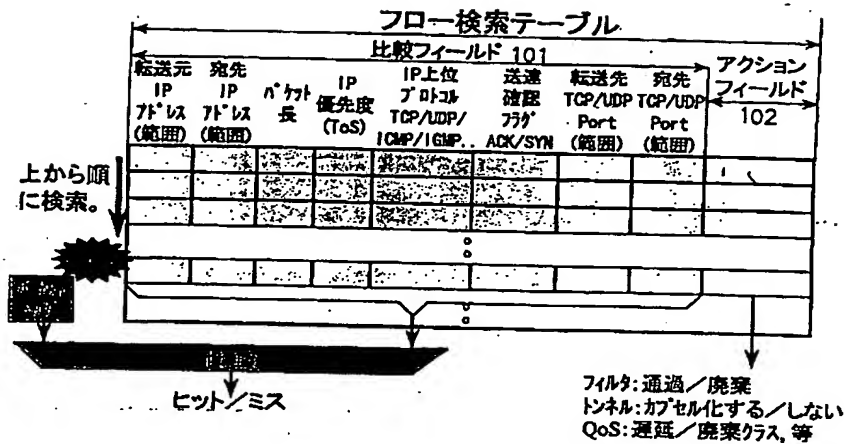 フロー検索テーブル
比較フィールド 101
転送元
IP
アドレス
(範囲)
宛先
IP
アドレス
(範囲)
パケット
長
IP
優先度
(ToS)
IP上位
プロトコル
TCP/UDP/
ICMP/IGMP..
送達
確認
フラグ
ACK/SYN
転送先
TCP/UDP
Port
(範囲)
宛先
TCP/UDP
Port
(範囲)
アクション
フィールド
102
上から順
に検索。
ヒット/ミス
フィルタ:通過/廃棄
トンネル:カプセル化する/しない
QoS:遅延/廃棄クラス,等